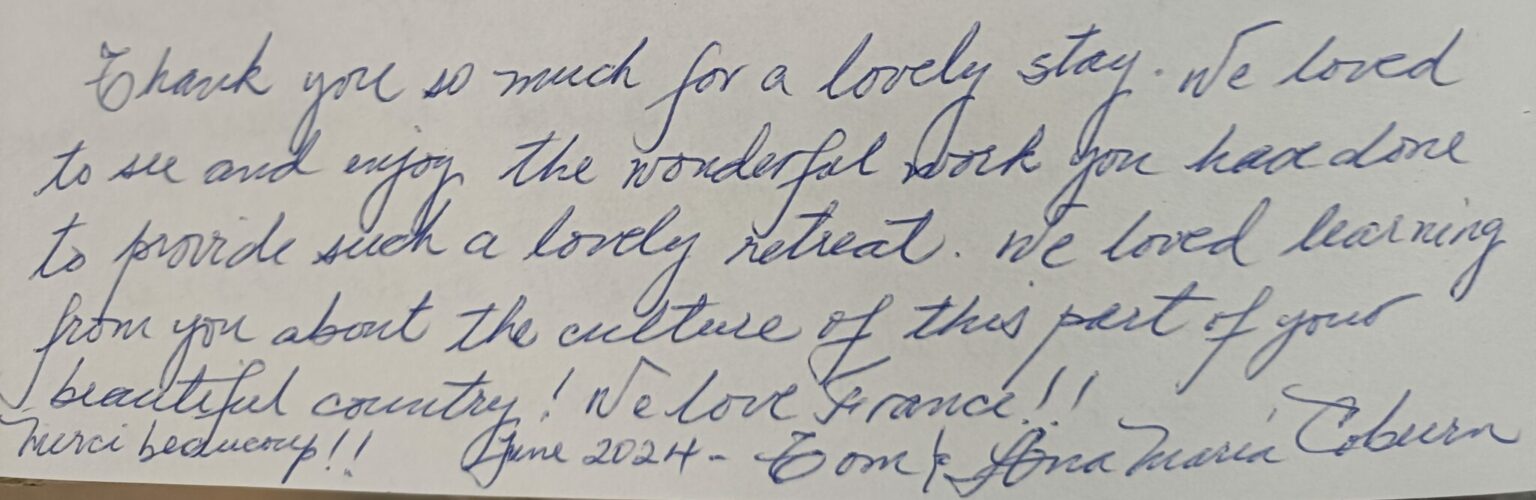 Thank you so much for a lovely stay. We loved
to see and enjoy the wonderful work you have done
to provide such a lovely retreat. We loved learning
from you about the culture of this part of your
beautiful country! We love France!!
Merci beaucoup!! June 2024 - Tom & Ana Maria Coburn